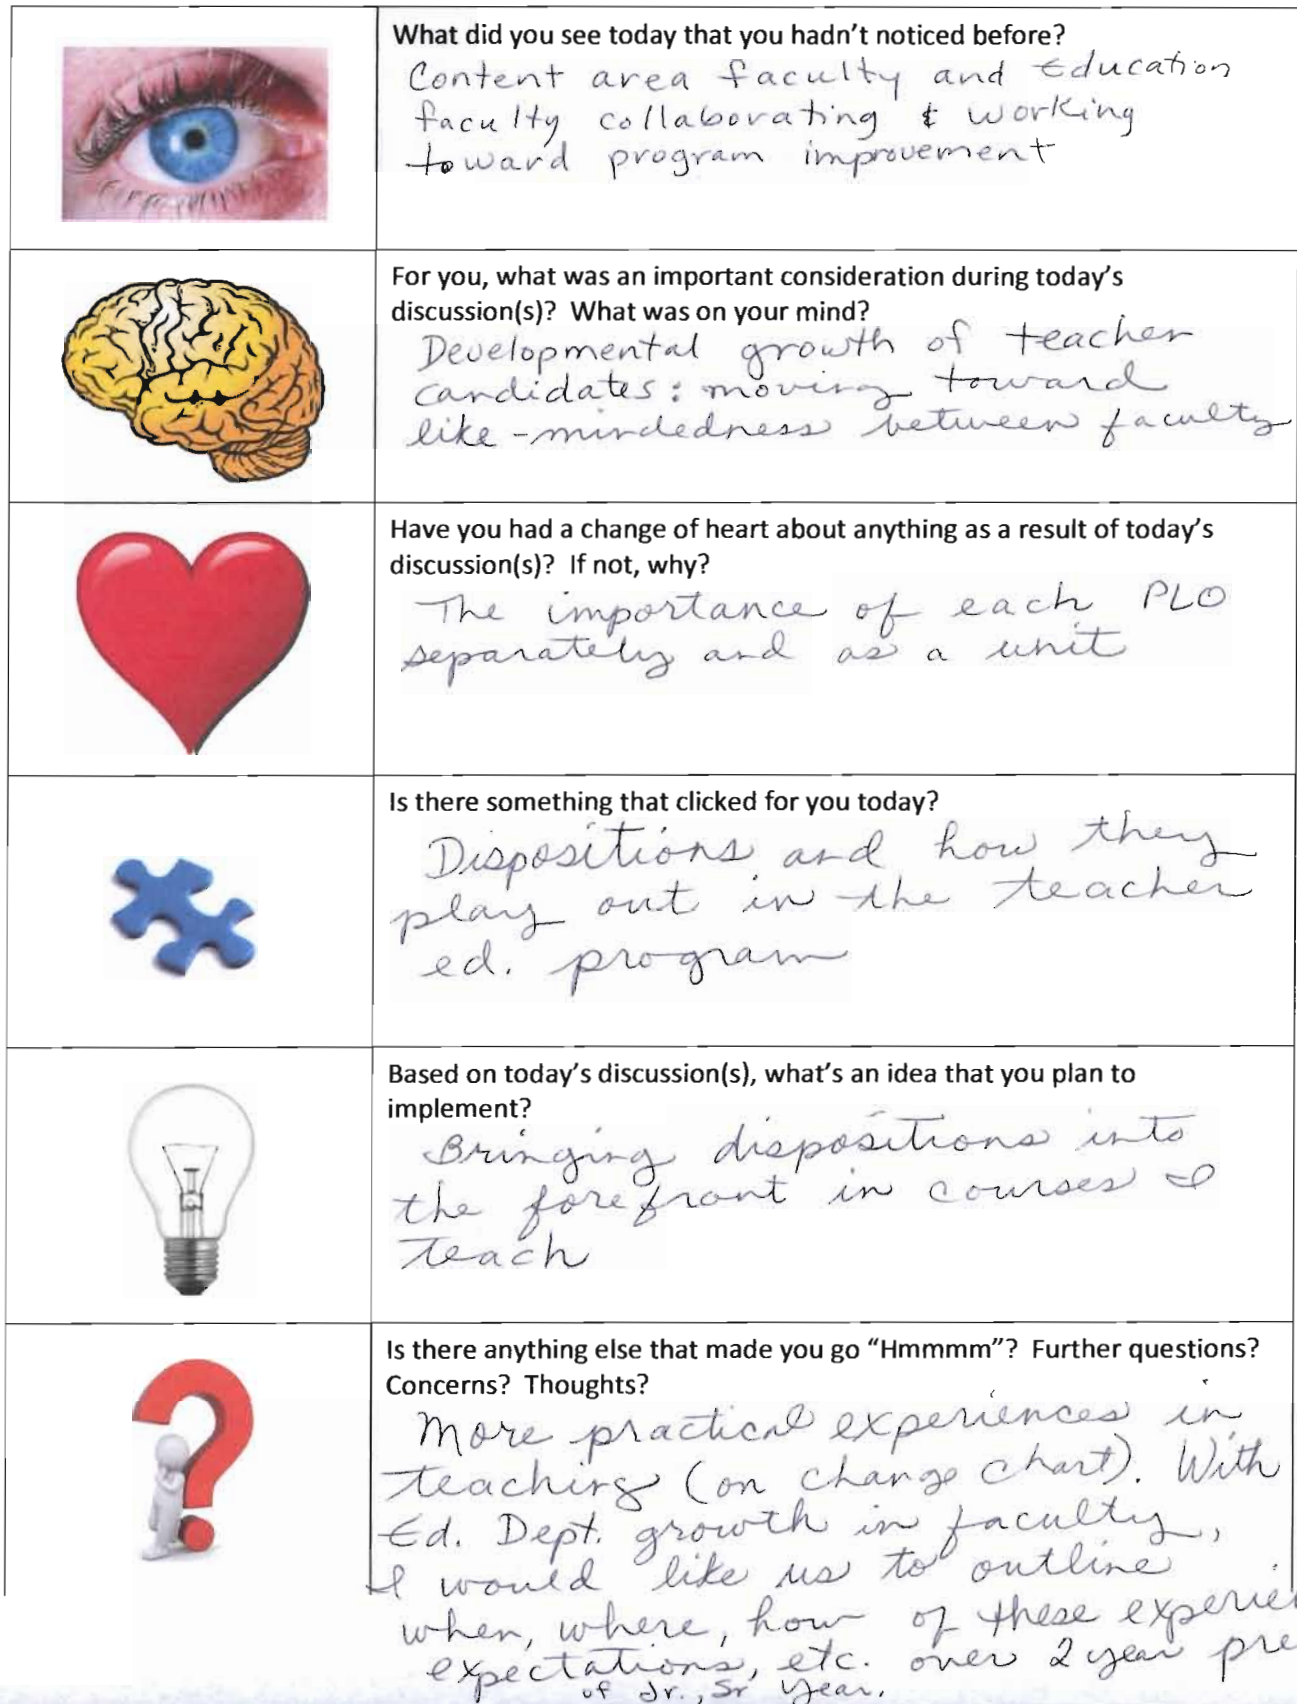 What did you see today that you hadn't noticed before?
Content area faculty and Education
faculty collaborating & working
toward program improvement
For you, what was an important consideration during today's
discussion(s)? What was on your mind?
Developmental growth of teacher
candidates: moving toward
like-mindedness between faculty
Have you had a change of heart about anything as a result of today's
discussion(s)? If not, why?
The importance of each PLO
separately and as a unit
Is there something that clicked for you today?
Dispositions and how they
play out in the teacher
ed. program
Based on today's discussion(s), what's an idea that you plan to
implement?
Bringing dispositions into
the forefront in courses I
teach
Is there anything else that made you go “Hmmmm”? Further questions?
Concerns? Thoughts?
More practical experiences in
teaching (on change chart). With
Ed. Dept. growth in faculty,
I would like us to outline
when, where, how of these
expectations, etc. over 2 year
of Jr., Sr year.